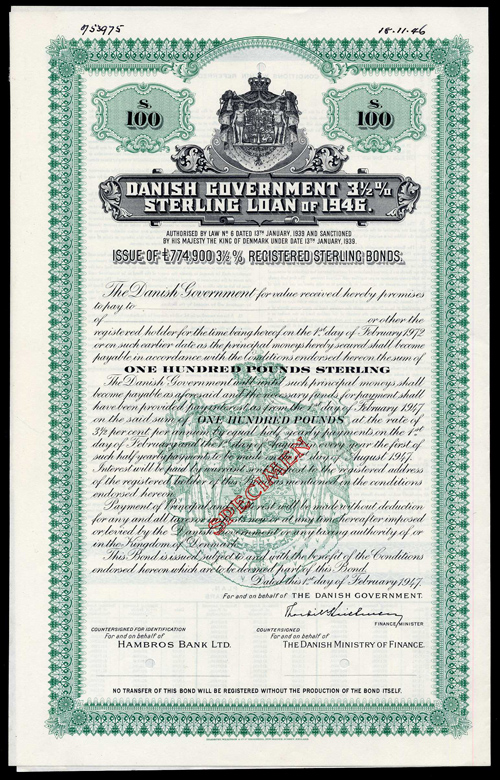 18-11-46
S. 100
S. 100
DANISH GOVERNMENT 3½%
STERLING LOAN OF 1946.
AUTHORISED BY LAW Nº 6 DATED 13TH JANUARY, 1939 AND SANCTIONED
BY HIS MAJESTY THE KING OF DENMARK UNDER DATE 13TH JANUARY, 1939.
ISSUE OF £774,900 3½% REGISTERED STERLING BONDS.
The Danish Government for value received hereby promises
to pay to
of or other the
registered holder for the time being hereof on the 1st day of February 1972
or on such earlier date as the principal moneys hereby secured shall become
payable in accordance with the Conditions endorsed hereon the sum of
ONE HUNDRED POUNDS STERLING
The Danish Government will until such principal moneys shall
become payable as aforesaid and the necessary funds for payment shall
have been provided pay interest as from the 1st day of February 1947
on the said sum of ONE HUNDRED POUNDS at the rate of
3½ per cent per annum by equal half-yearly payments on the 1st
day of February and the 1st day of August in every year the first of
such half yearly payments to be made on the 1st day of August 1947.
Interest will be paid by warrant sent to the registered address
of the registered holder of this Bond in accordance with the conditions
endorsed hereon.
Payment of principal and interest will be made without deduction
for any and all taxes now or at any time hereafter imposed
or levied by the Danish Government or any taxing authority of or
in the Kingdom of Denmark.
This Bond is issued subject to and with the benefit of the Conditions
endorsed hereon which are to be deemed part of this Bond.
Dated this 1st day of February 1947.
SPECIMEN
For and on behalf of THE DANISH GOVERNMENT.
FINANCE MINISTER
COUNTERSIGNED FOR IDENTIFICATION
For and on behalf of
HAMBROS BANK LTD.
COUNTERSIGNED
For and on behalf of
THE DANISH MINISTRY OF FINANCE.
NO TRANSFER OF THIS BOND WILL BE REGISTERED WITHOUT THE PRODUCTION OF THE BOND ITSELF.